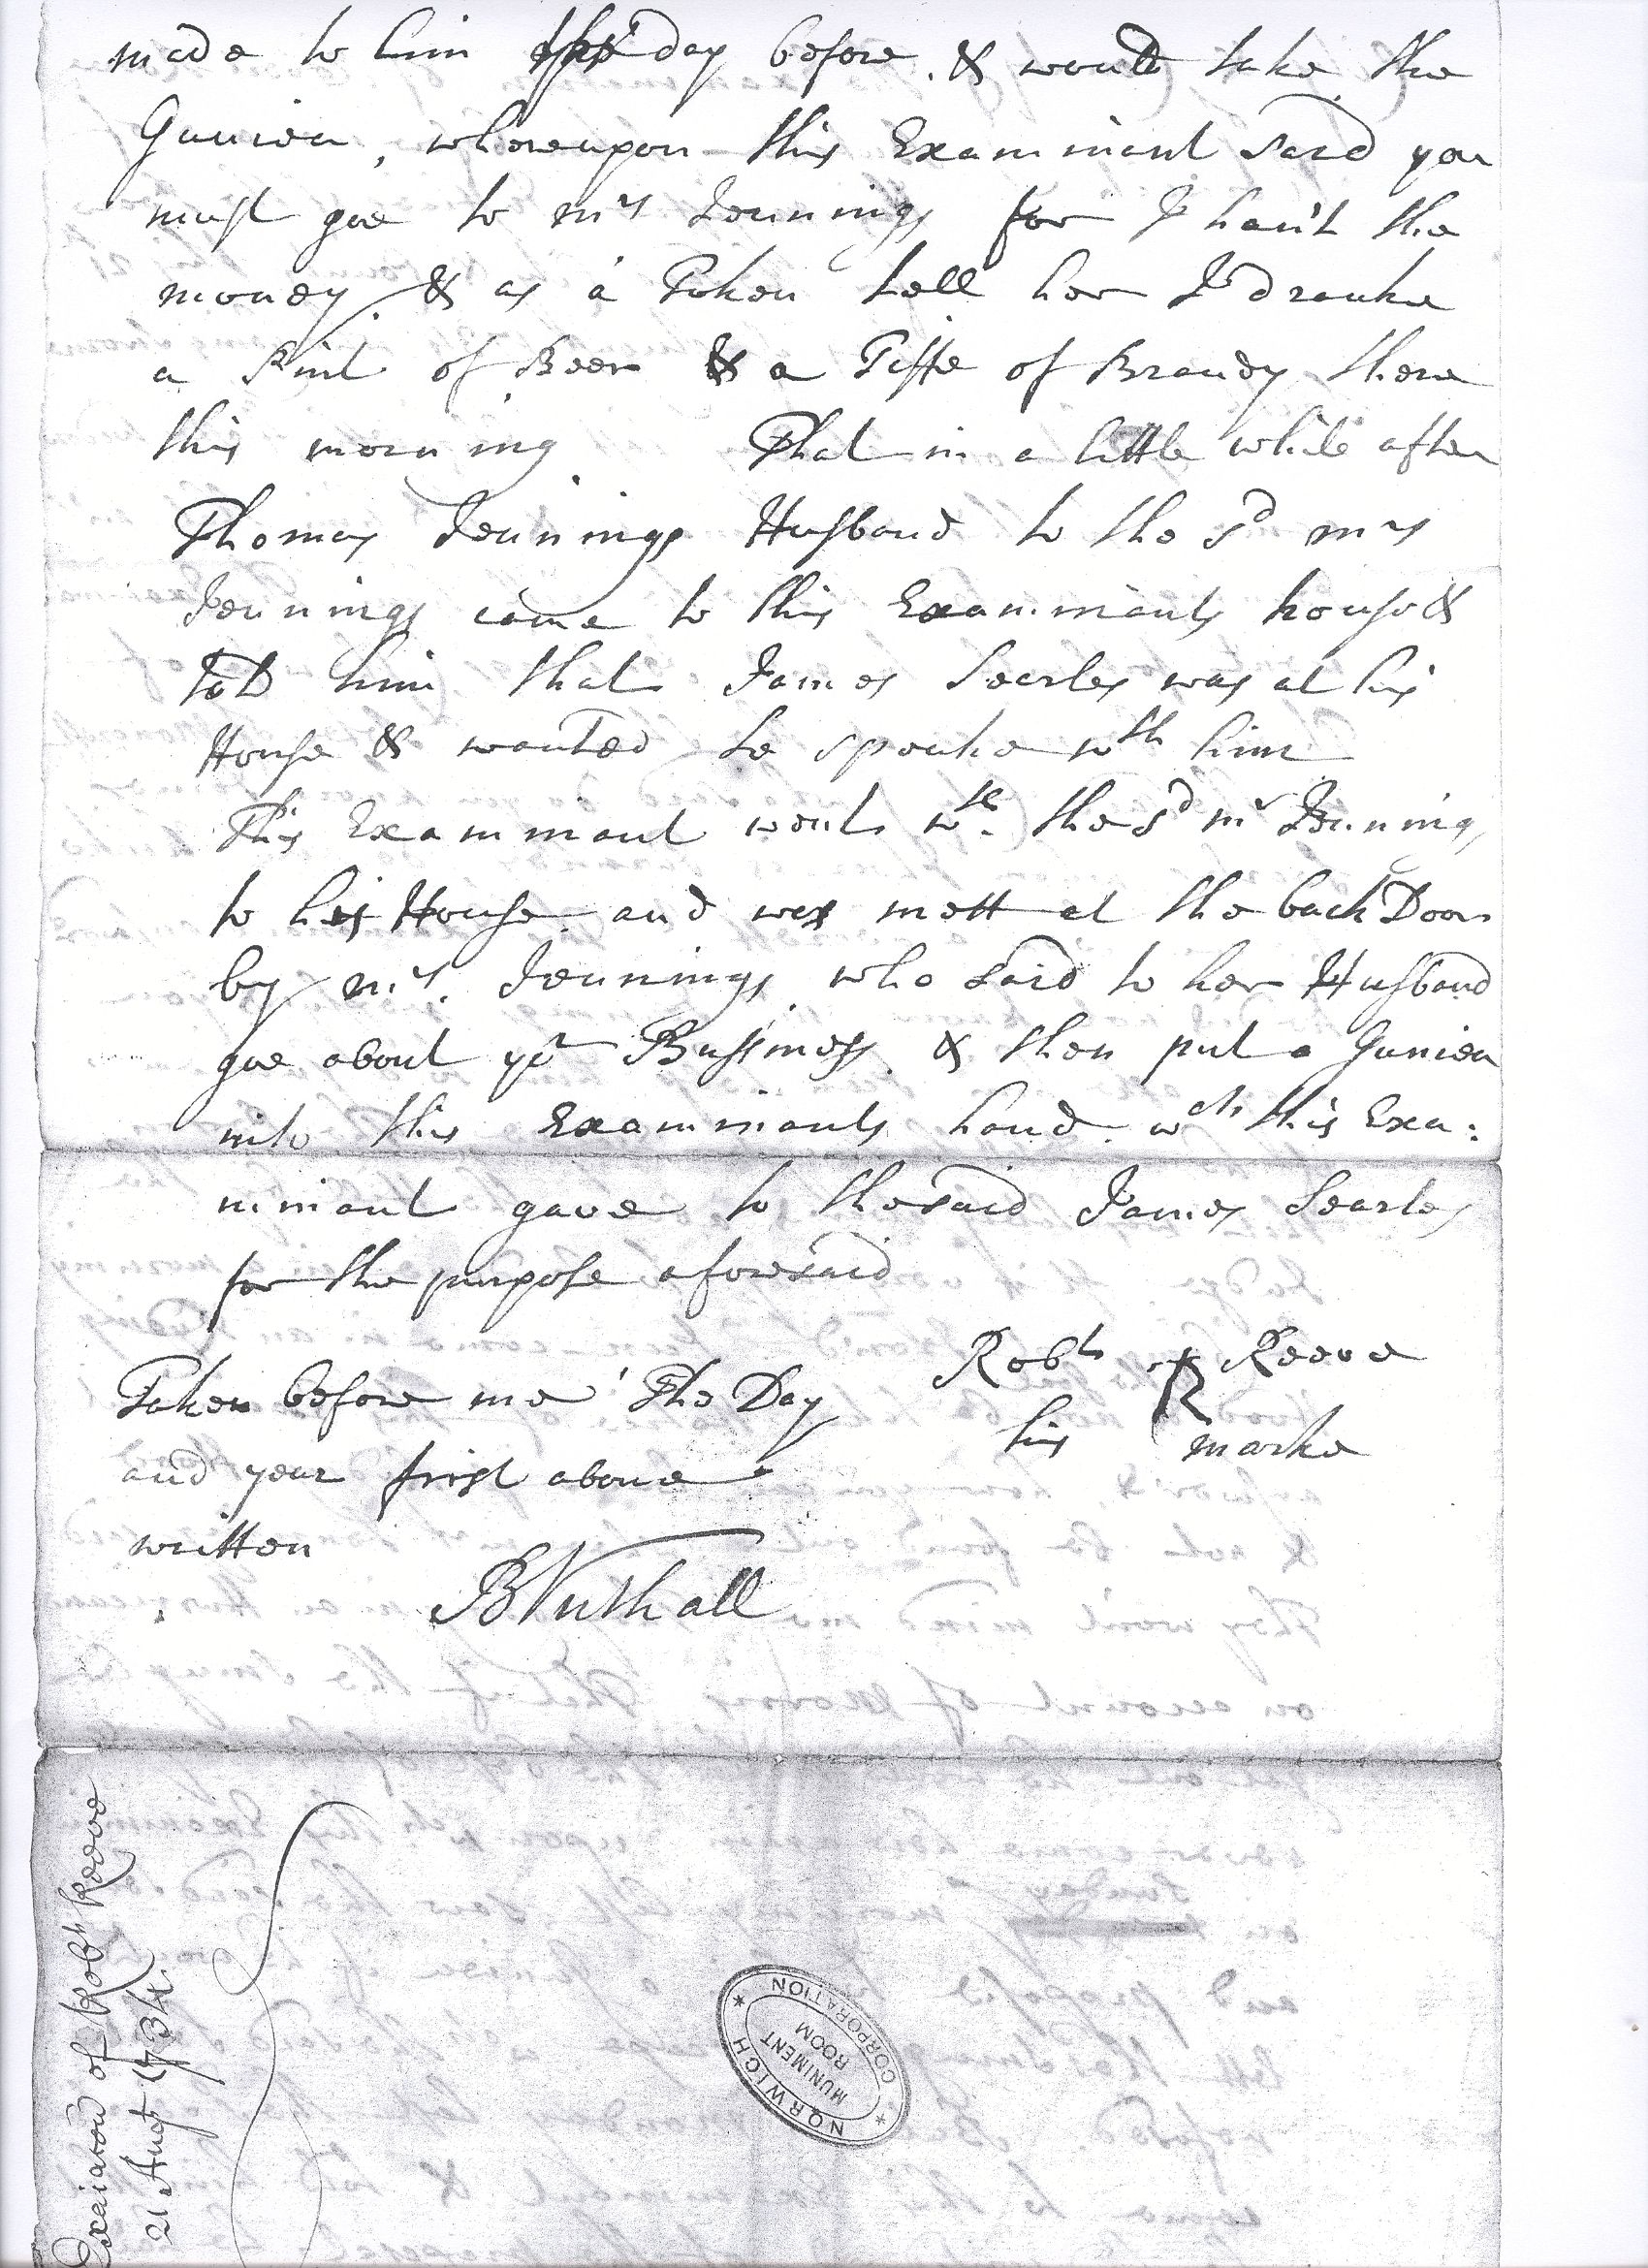 made to him the day before. & would take the
Guniea, whereupon this Examinant said you
must goe to mrs Jennings for I han't the
money. & as a Token tell her I dranke
a Pint of Beer & a Tiffe of Brandy there
this morning. That in a little while after
Thomas Jennings Husband to the sd mrs
Jennings came to this Examinants house &
told him that James Searles was at his
House & wanted to speake wth him
This Examinant went wth the sd mr Jennings
to his House and was mett at the back Door
by mrs. Jennings who said to her Husband
goe about yor Bussiness. & then put a Guniea
into this Examinants hand wch this Exa:
minant gave to the said James Searles
for the purpose aforesaid
Robt R Reeve
his marke
Taken before me The Day
and year first above
written
B Nuthall
of Robt Reeve
21 Augt 1734.
NORWICH CORPORATION
MUNIMENT
ROOM